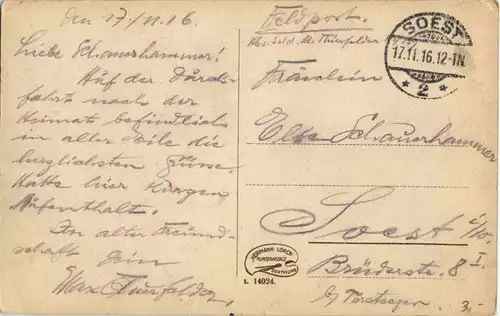 den 17/11.16.
Liebe Schauerhammer!
Auf der Durch-
fahrt nach der
Heimat befindlich
in aller Eile die
herzlichsten Grüsse.
Hatte hier kurzen
Aufenthalt.
In alter Freund-
schaft Dein
Max Thurfelder
Feldpost.
Abs. Sold. M. Thurfelder
SOEST
17.11.16.12-1N.
* 2 *
Fräulein
Else Schauerhammer
Soest i/W.
Brüderstr. 8 I.
b/
3,-
HERMANN LORCH
KUNSTANSTALT
DORTMUND
L. 14024.